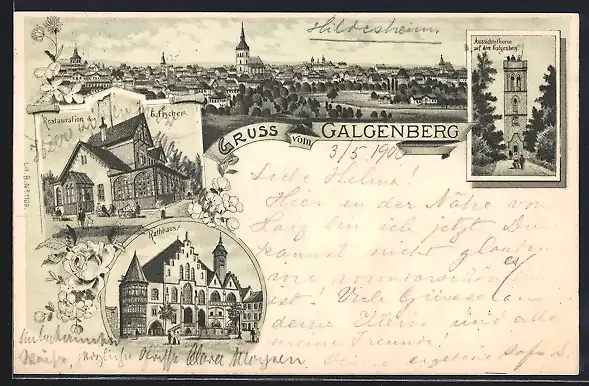 Hildesheim.
Aussichtsthurm
auf dem Galgenberg
Restauration
E. Fischer
GRUSS vom GALGENBERG
3/5 1900
Liebe Helma!
Hier in der Nähe vom
Harz bin ich jetzt Du
kannst nicht glauben
wie
es
ist. Viele Grüsse an
deine Eltern und alle
meine Freunde!
Rathhaus
Unbekannter
Weise, herzliche Grüsse Clara